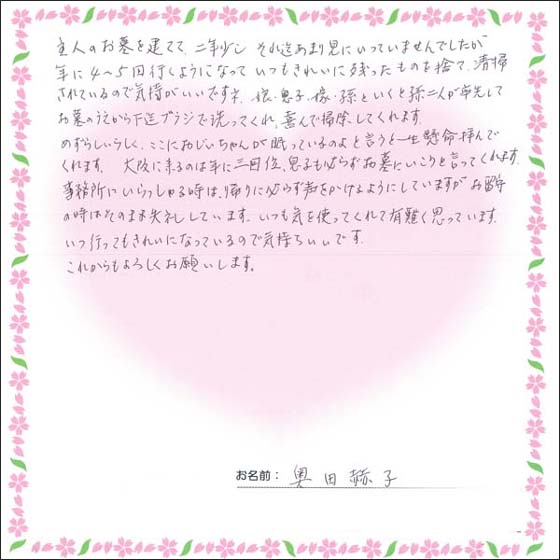 主人のお墓を建てて、二年少し それ迄あまり見にいっていませんでしたが
年に4〜5回行くようになって いつもきれいに残ったものを捨て、清掃
されているので気持がいいです。娘・息子・嫁・孫といくと孫二人が率先して
お墓のうえから下迄ブラシで洗ってくれ、喜んで掃除してくれます。
めずらしいらしく、ここにおじいちゃんが眠っているのよと言うと一生懸命拝んで
くれます。 大阪に来るのは年に三回位、息子も必らずお墓にいこうと言ってくれます。
事務所にいらっしゃる時は、帰りに必らず声をかけるようにしていますがお留守
の時はそのまま失礼しています。いつも気を使ってくれて有難く思っています。
いつ行ってもきれいになっているので気持ちいいです。
これからもよろしくお願いします。
お名前： 奥田 子